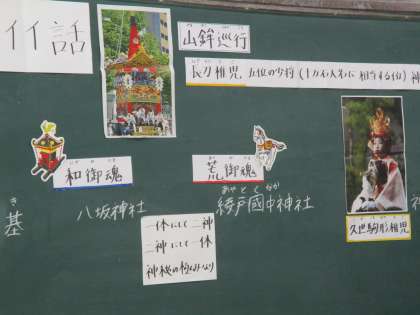 イイ話
山鉾巡行
長刀稚児 五位の少将(十万石大名に相当する位)神
和御魂
荒御魂
き
基
八坂神社
あやとくなか
綾戸國中神社
一体にして二神
二神にして一体
久世駒形稚児
神